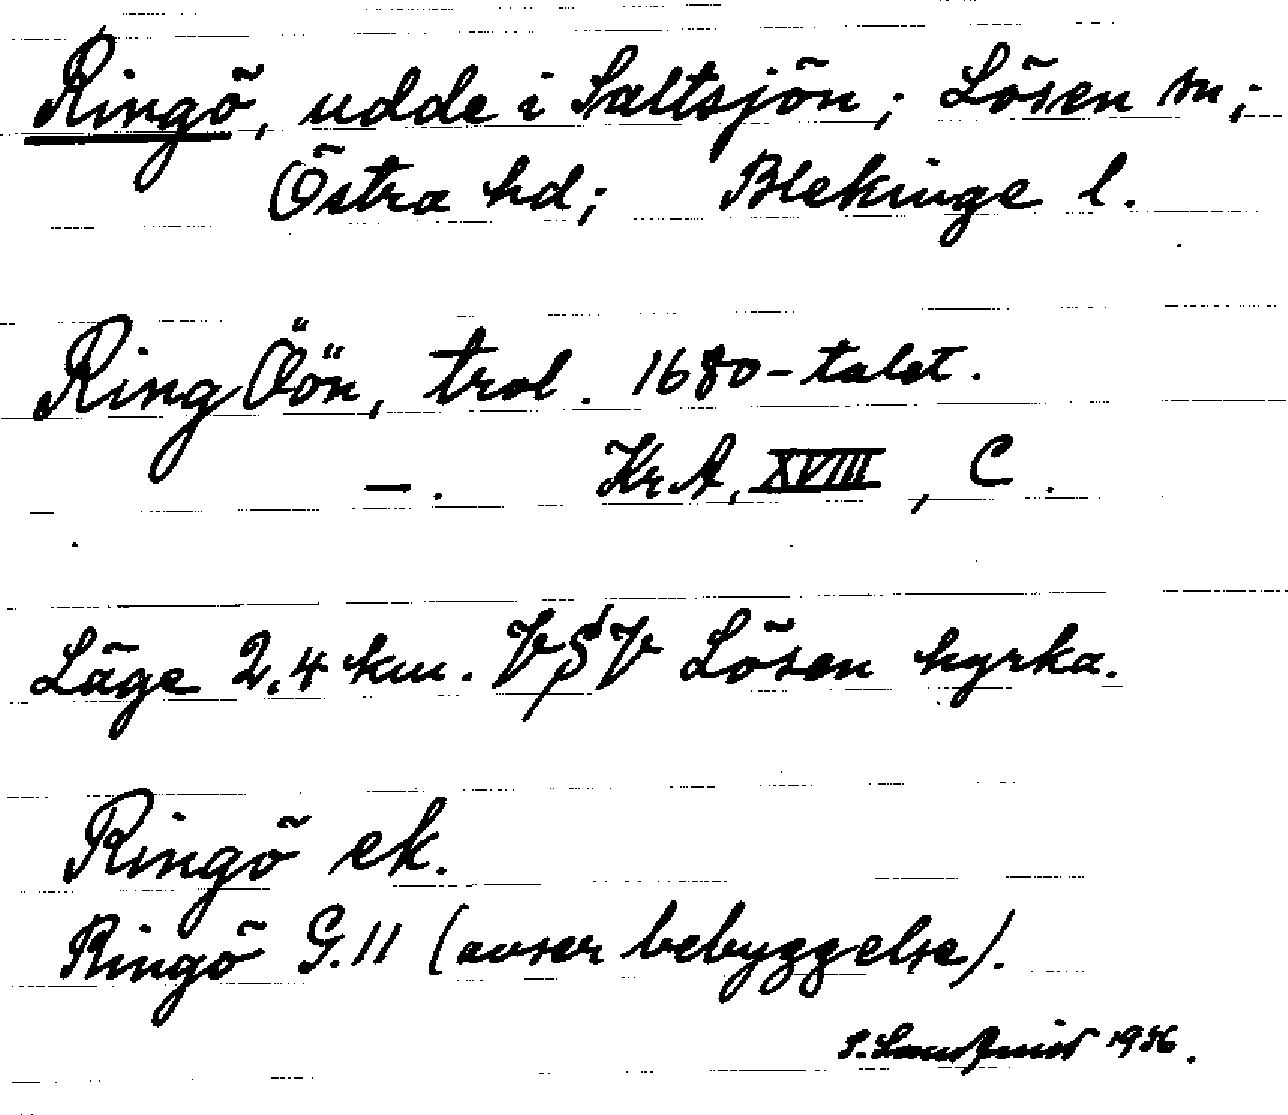 Ringö, udde i Saltsjön; Lösen sn;
Östra hd; Blekinge l.
Ring Öön, trol. 1680-talet.
—. KrA, XVIII, C.
Läge 2,4 km. VSV Lösen kyrka.
Ringö ek.
Ringö G.11 (avser bebyggelse).
1936.